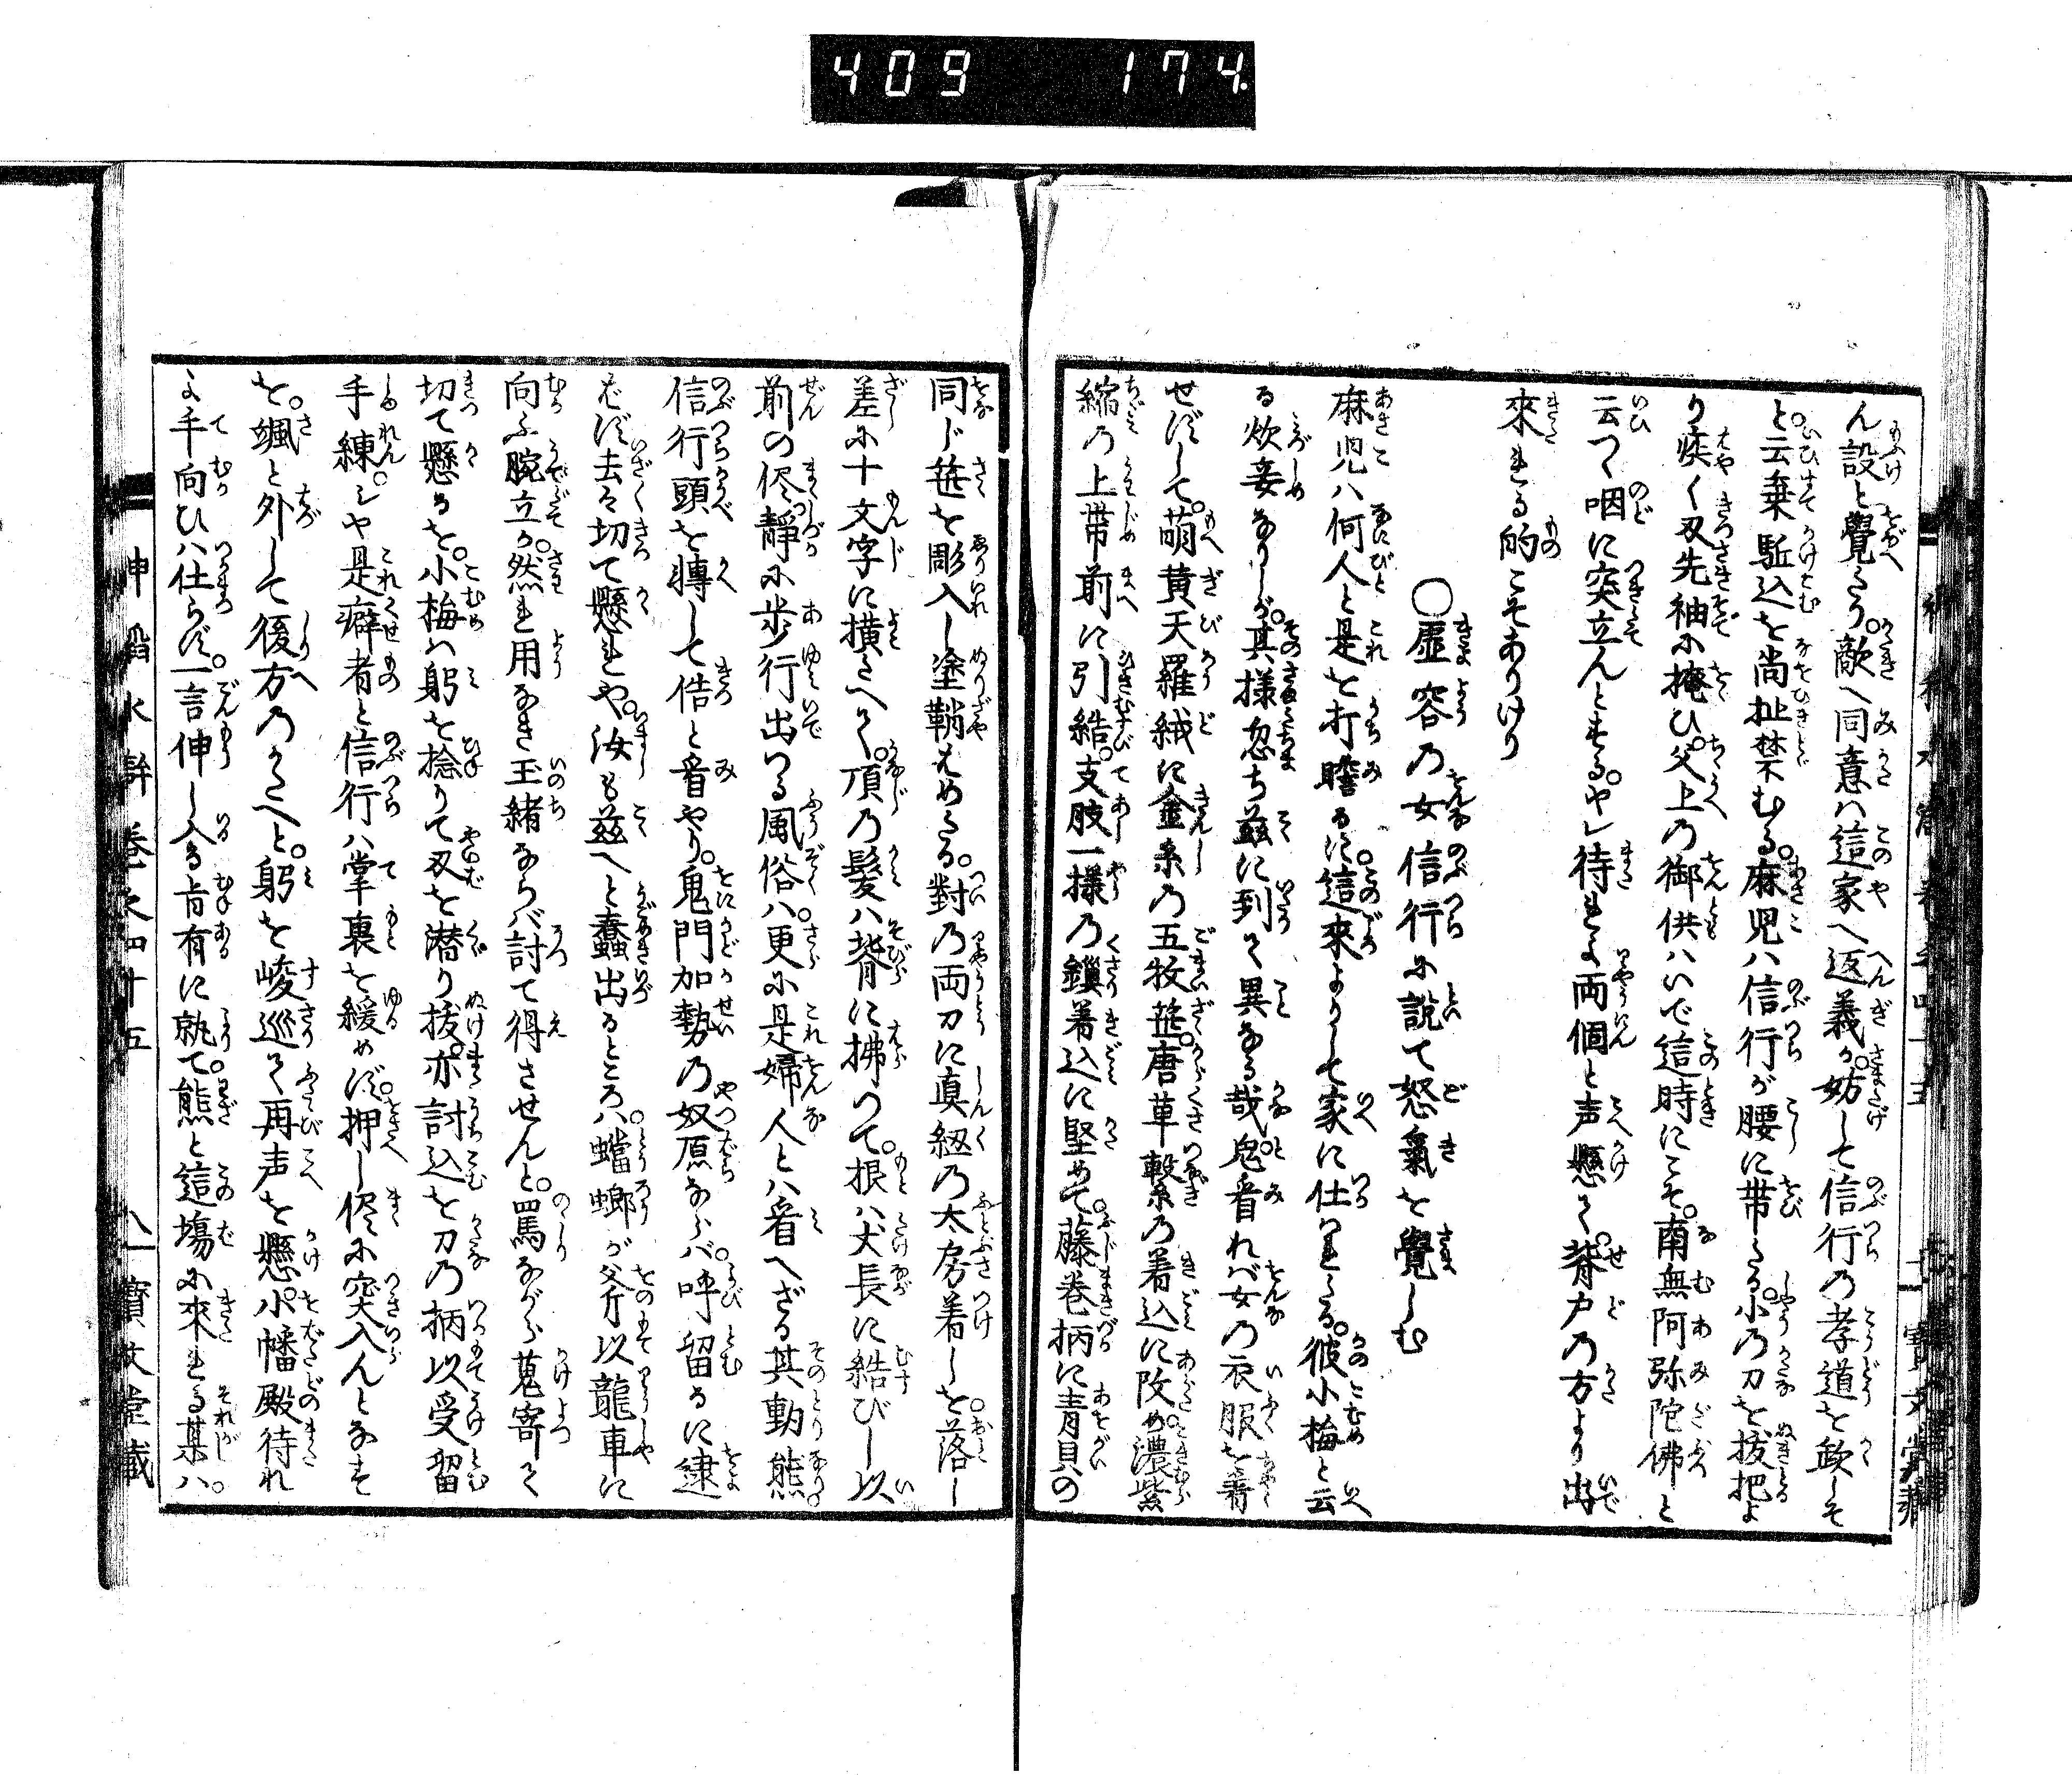 409 174.
ん設と覺たり。敵へ同意は這家へ返義か。妨して信行の孝道を缺しそ
と。云棄駈込を尚扯禁むる。麻児ハ信行が腰に帯たる。小の刀を抜把よ
り疾く刄先袖に掩ひ。父上の御供ハいで這時にこそ。南無阿弥陀佛と
云つく咽に突立んとする。ヤレ待れよ両個と声懸て。背戸の方より出
來れる的こそありけり
〇虚容の女信行に説て怒氣を覺しむ
麻児ハ何人と是を打瞻るに。這來よりして家に仕へたる。彼小梅と云
る炊妾なりしが。其様忽ち茲に到りて異なる哉。鬼看れバ女の衣服を着
せずして。萌黄天羅絨に金糸の五枚笹。唐草繋の着込に改め。濃紫
縮の上帯前に引結。支肢一様の鎖着込に堅めて。藤巻柄に青貝の
同じ笹を彫入し塗鞘はめたる。對の両刀に真紐の太房着しを落し
差に十文字に横たへて。頂の髪ハ背に拂つて。根ハ犬長に結びし以
前の侭。靜に歩行出つる風俗ハ。更に是婦人とハ看へざる其動熊。
信行頭を轉して佶と看やり。鬼門加勢の奴原ならバ。呼留るに逮
ばず去そ切て懸れや。汝も茲へと蠢出るところハ。蟷螂が斧以龍車に
向ふ腕立か。然れ用なき玉緒ならバ討て得させんと。罵ながら蒐寄て
切て懸るを。小梅は躬を捻りて刄を潜り抜。亦討込を刀の柄以受留
手練。シや是癖者と信行ハ掌裏を緩めず。押し侭に突入んとなす
を。颯と外して後方のかたへと。躬を峻巡て再声を懸。小幡殿待れ
よ手向ひハ仕らず。一言伸し入る肯有に孰て。熊と這場に來れる某ハ。
巻之四十五
八
寶文堂藏